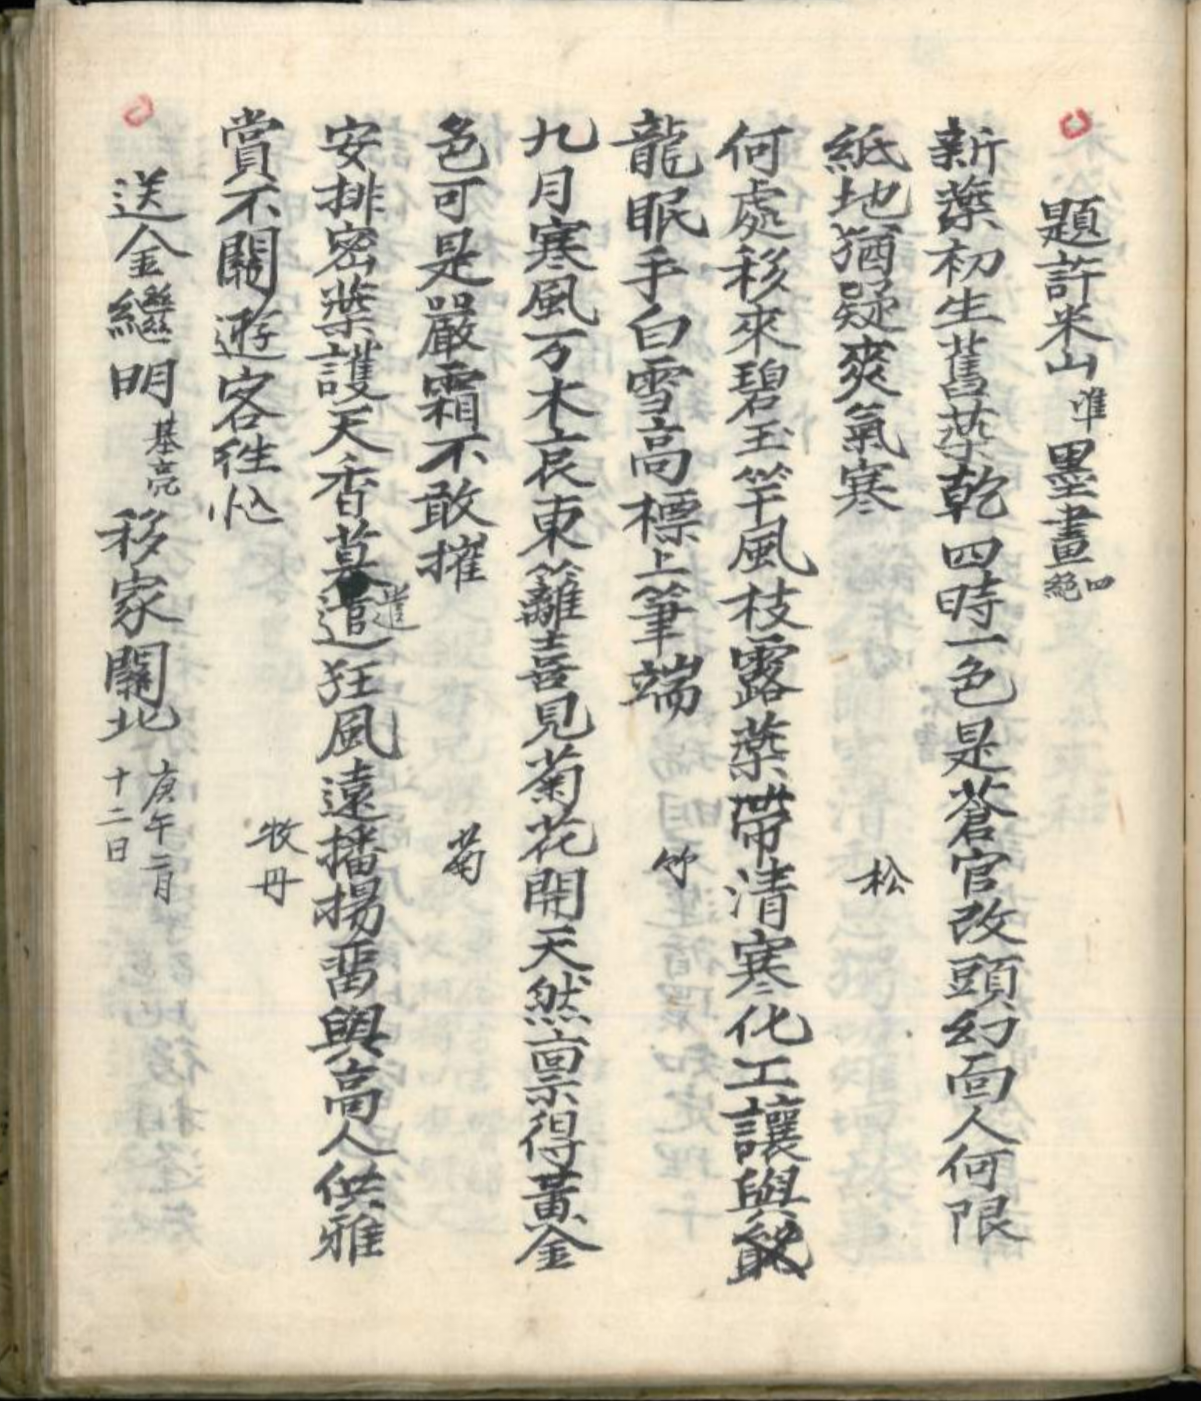 題許米山準墨畫四絕
新葉初生舊葉乾四時一色是蒼官改頭幻面人何限
紙地猶疑爽氣寒 松
何處移來碧玉竿風枝露葉帶清寒化工讓與
龍眠手白雪高標上筆端 竹
九月寒風万木哀東籬喜見菊花開天然禀得黃金
色可是嚴霜不敢摧 菊
安排密葉護天香莫遣狂風遠播揚留與高人供雅
賞不關遊客往忙 牧丹
送金繼明基亮移家關北庚午二月十二日